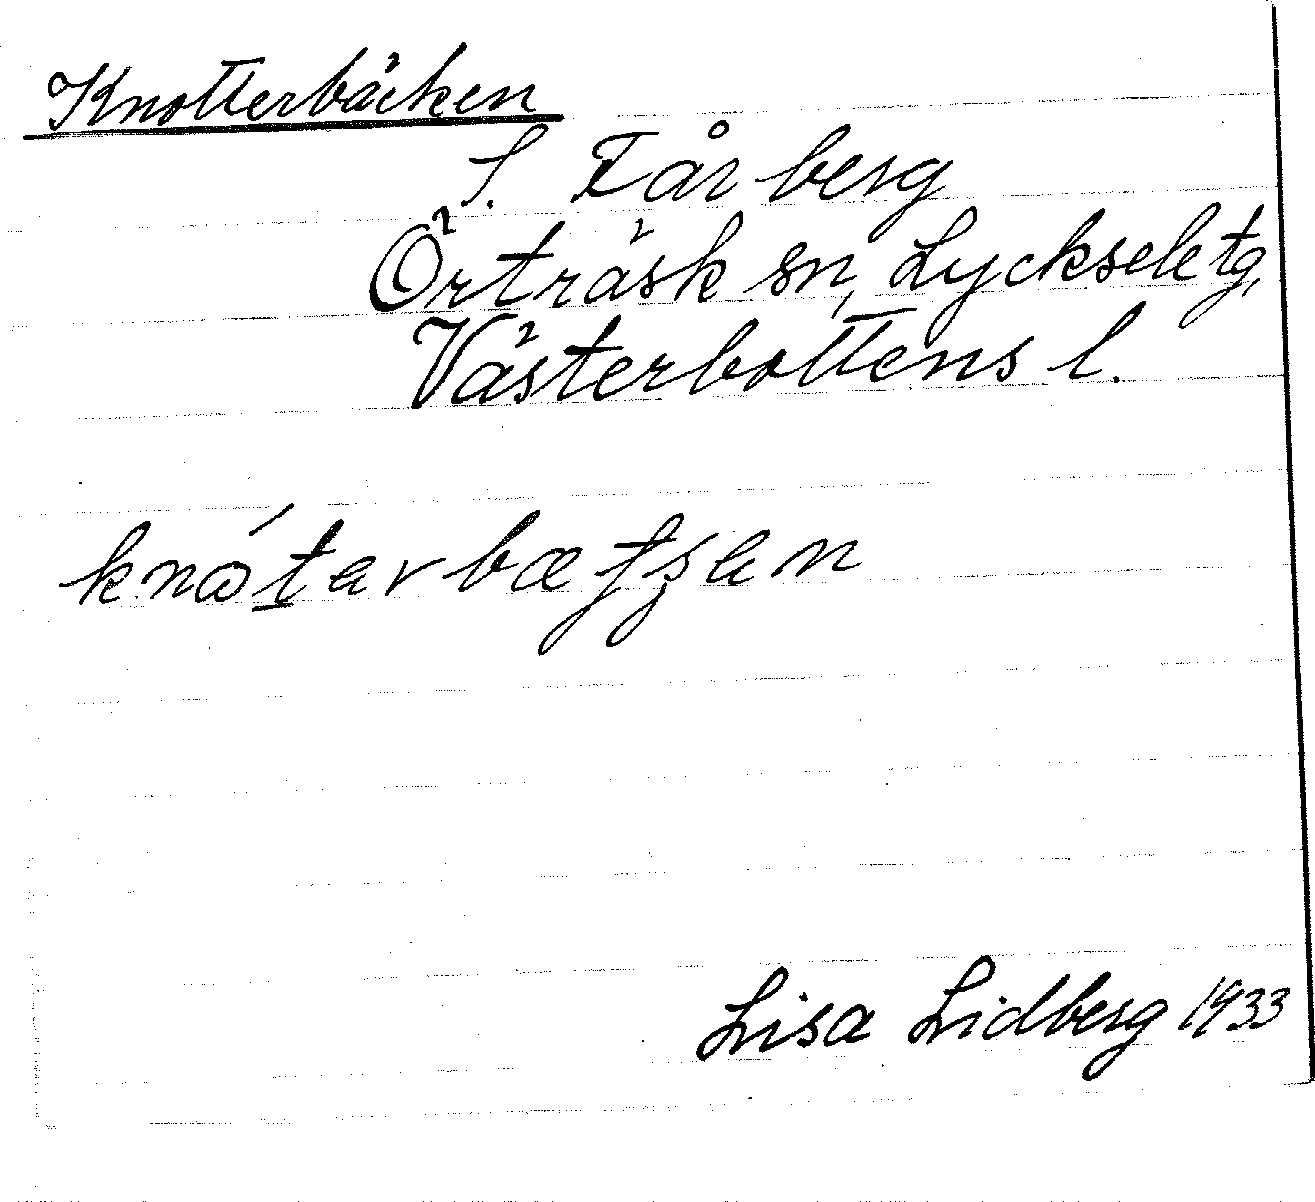 Knotterbäcken
S. Fårberg
Örträsk sn, Lycksele tg,
Västerbottens l.
knåtarbætsan
Lisa Lidberg 1933